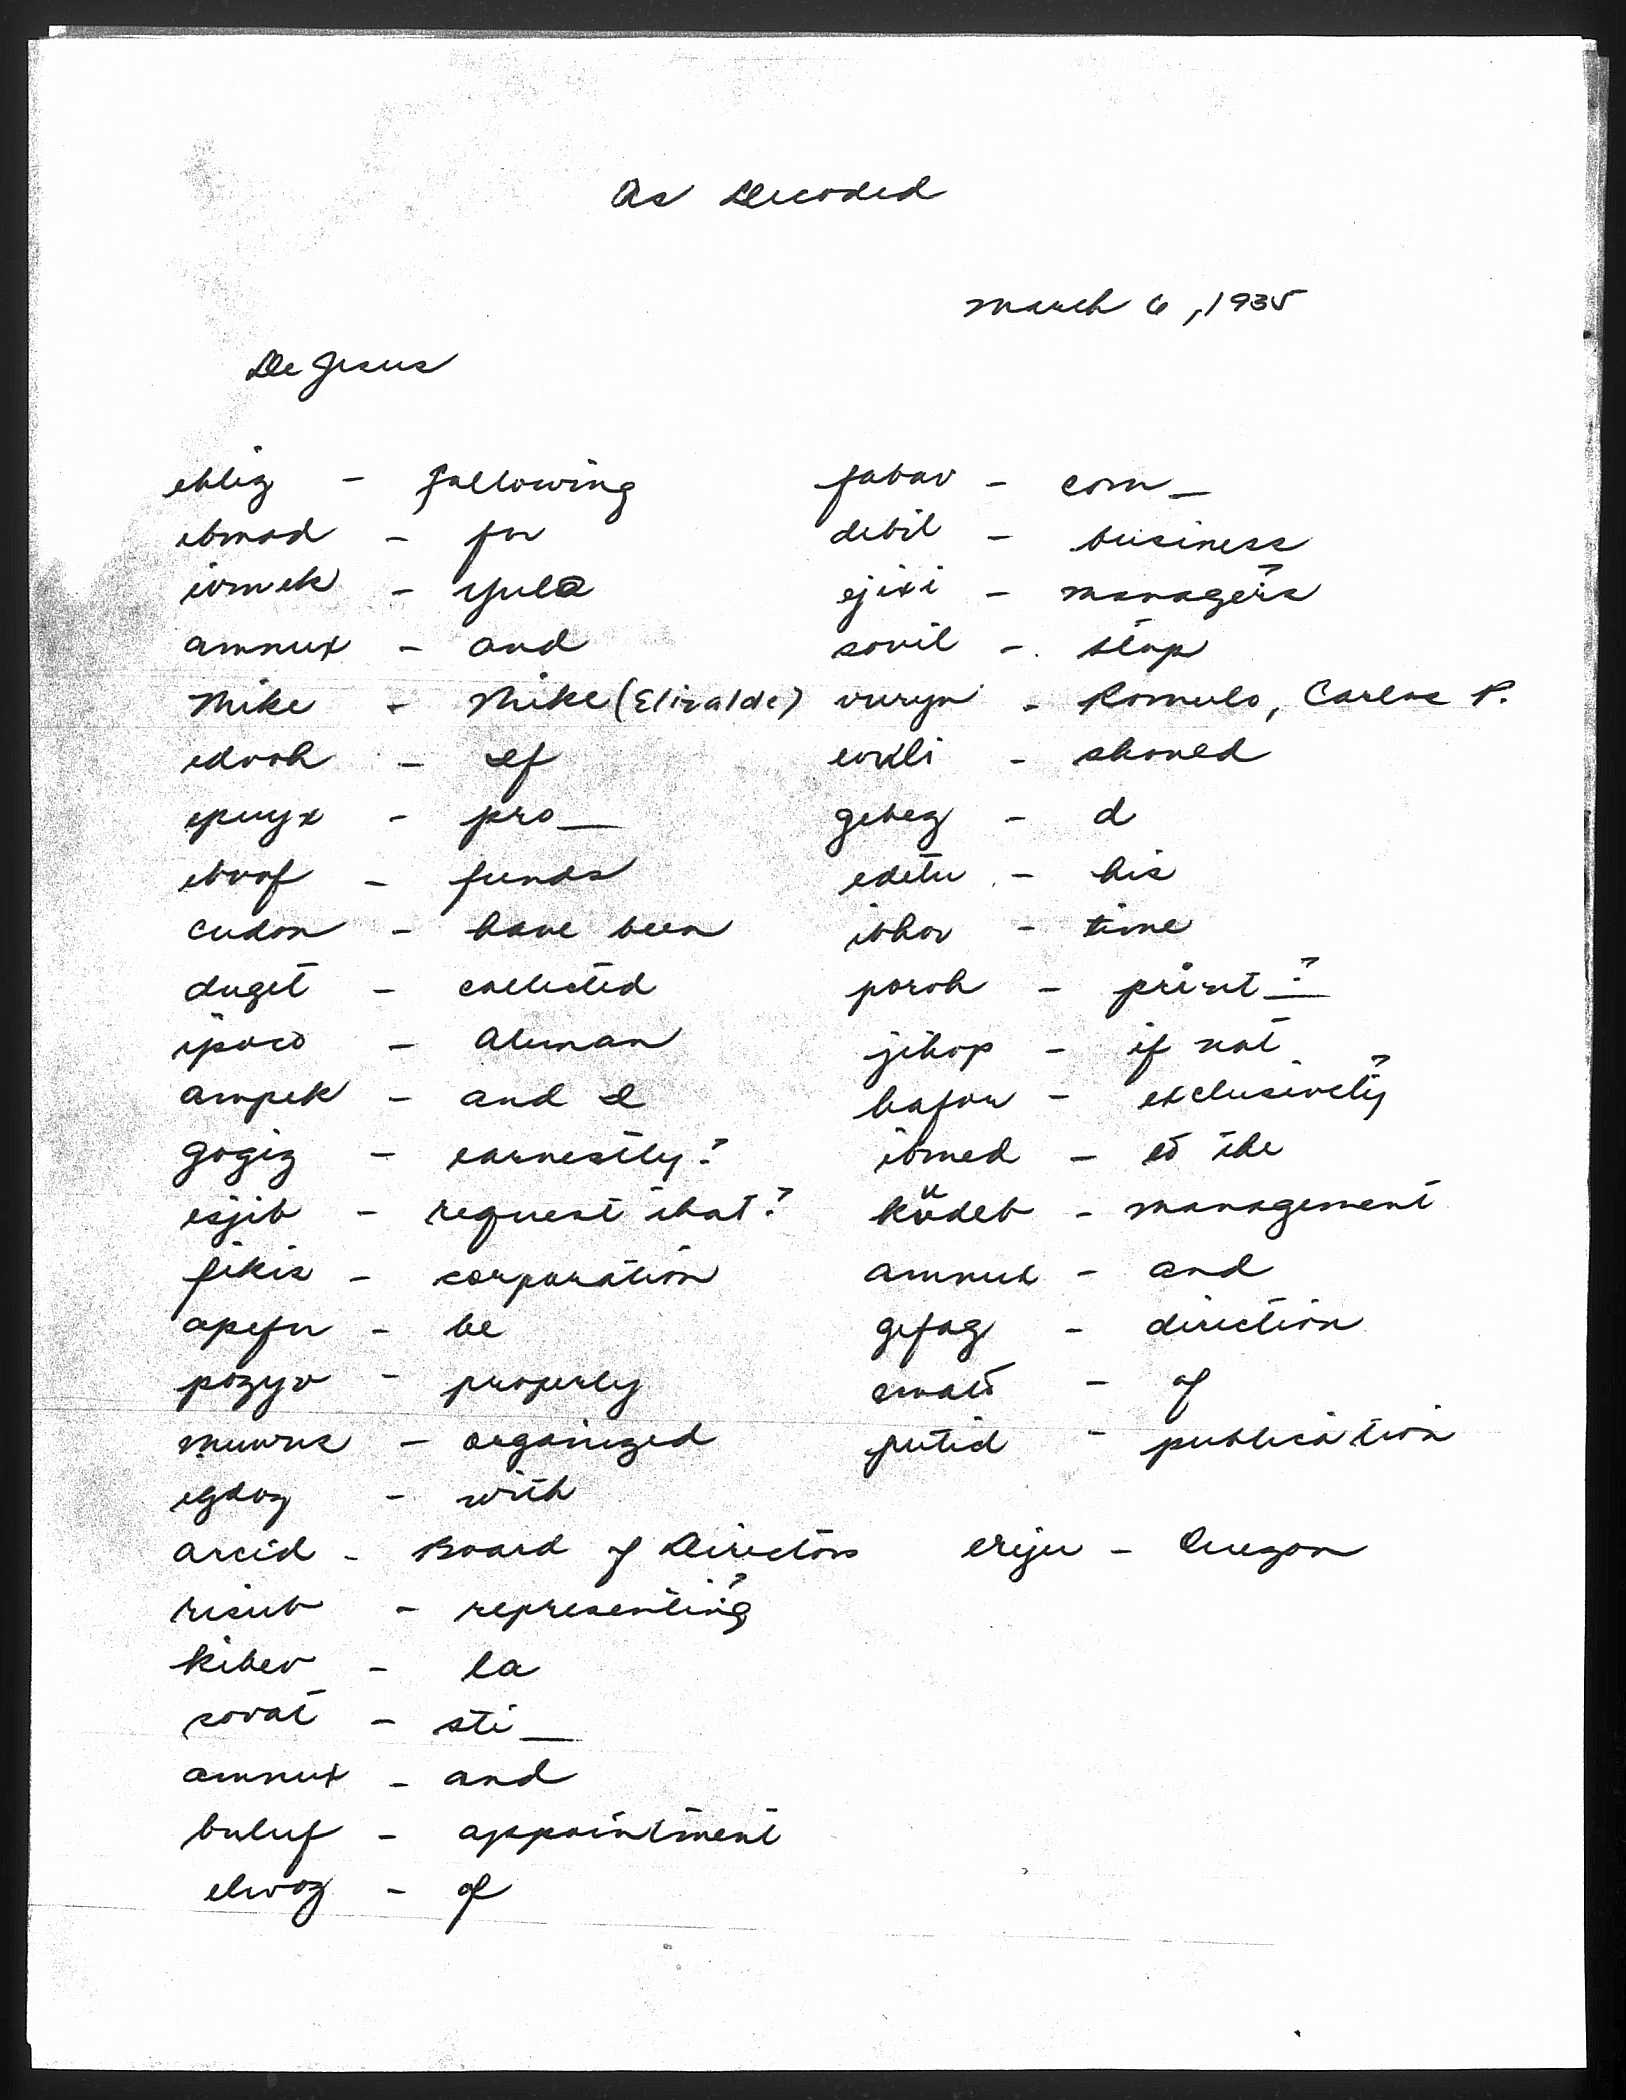 As Decoded
March 6, 1935
De Jesus
ehliz - following
ebmod - for
ivmek - Yulo
amnux - and
Mike - Mike (Elizalde)
edvoh - if
epuyx - pro_
ebvof - funds
cudon - have been
duget - collected
ipoco - Aleman
ampek - and I
gogiz - earnestly?
esjib - request that?
fikis - corporation
apefu - be
pozyv - properly
muwus - organized
egdoz - with
arcid - Board of Directors
risub - representing?
kibev - la
sovat - sti_
amnux - and
buluf - appointment
elwoz - of
fabav - com_
debil - business
ejixi - manager's?
sovil - stop
vuryn - Romulo, Carlos P.
evxli - should
gebeg - d
edetu - his
ibhov - time
poroh - print_?
jihop - if not
bafow - exclusively?
ibmed - to the
kudeb - management
amnux - and
gifag - direction
of
putid - publication
eriju - Oregon